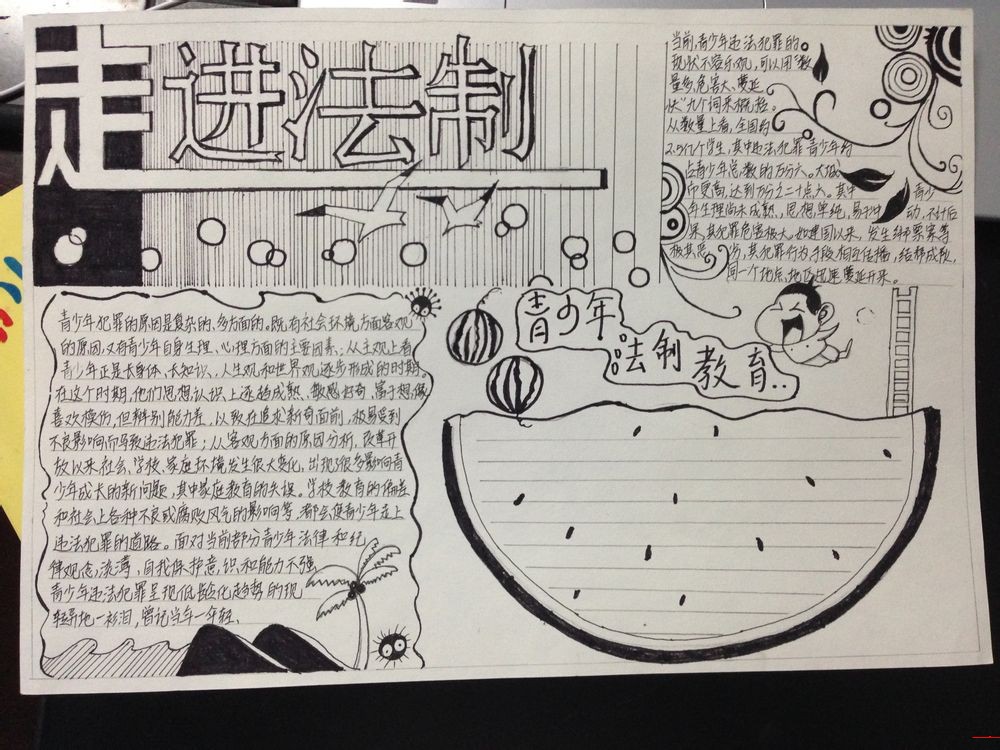 走进法制
当前，青少年违法犯罪的
现状不容乐观，可以用“数
量多、危害大、蔓延
快”九个词来概括。
从数量上看，全国约
2.5亿个学生，其中违法犯罪青少年约
占青少年总数的万分六。大城
而更高，达到万分之二十点六。其中 青少
年生理尚未成熟，思想单纯，易于冲 动，不计后
果，其犯罪危害极大。如建国以来，发生绑票案等
极其恶 劣，其犯罪行为手段相互传播，结帮成队，
同一个地点、地 迅速蔓延开来。
青少年犯罪的原因是复杂的、多方面的。既有社会环境方面客观
的原因，又有青少年自身生理、心理方面的主要因素；从主观上看
青少年正是长身体、长知识、人生观和世界观逐步形成的时期。
在这个时期，他们思想认识上逐趋成熟、敏感好奇、富于想像
喜欢模仿，但辨别能力差，以致在追求新奇面前，极易受到
不良影响而导致违法犯罪；从客观方面的原因分析，改革开
放以来社会、学校、家庭环境发生很大变化，出现了很多影响青
少年成长的新问题，其中家庭教育的失误。学校教育的偏差
和社会上各种不良或腐败风气的影响等，都会使青少年走上
违法犯罪的道路。面对当前部分青少年法律和纪
律观念淡薄，自我保护意识和能力不强
青少年违法犯罪呈现低龄化趋势的现
轻弹地一衫泪，曾记当年一年轻、
青少年
法制教育..